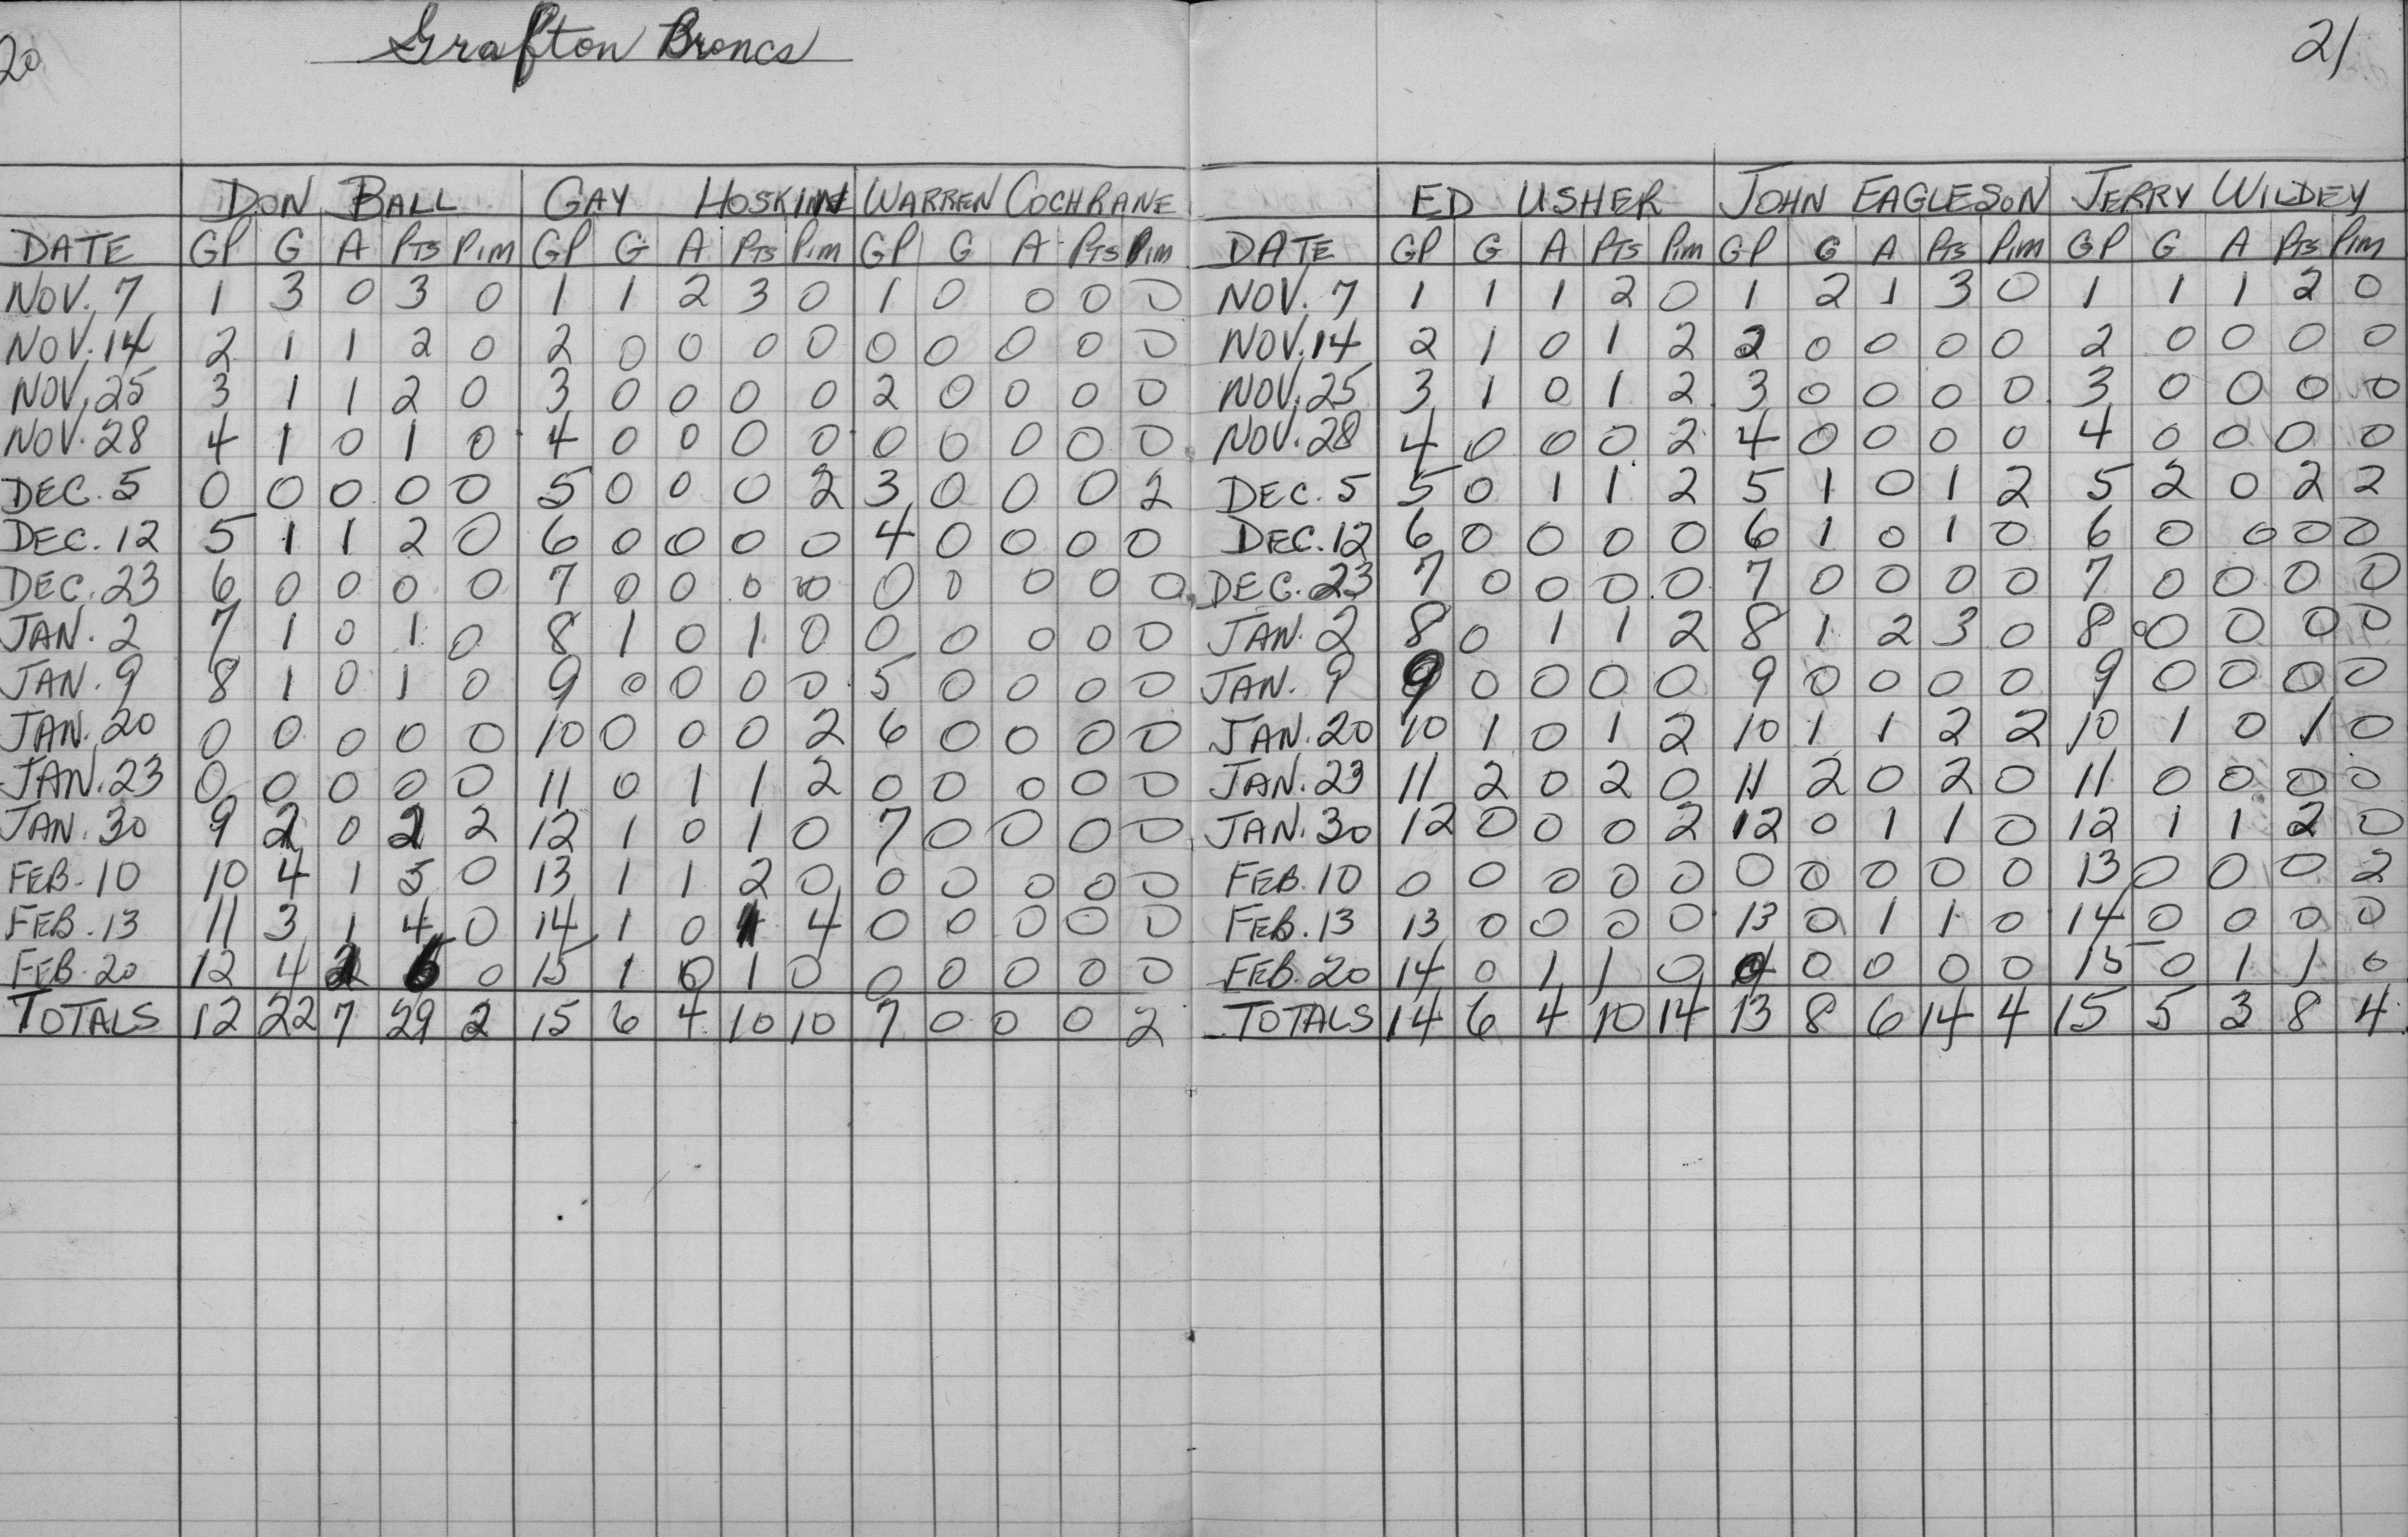 20
Grafton Broncs
DON BALL GAY HOSKIN WARREN COCHRANE
DATE GP G A PTS PIM GP G A PTS PIM GP G A PTS PIM
NOV. 7 1 3 0 3 0 1 1 2 3 0 1 0 0 0 0
NOV. 14 2 1 1 2 0 2 0 0 0 0 0 0 0 0 0
NOV. 25 3 1 1 2 0 3 0 0 0 0 2 0 0 0 0
NOV. 28 4 1 0 1 0 4 0 0 0 0 0 0 0 0 0
DEC. 5 0 0 0 0 0 5 0 0 0 2 3 0 0 0 2
DEC. 12 5 1 1 2 0 6 0 0 0 0 4 0 0 0 0
DEC. 23 6 0 0 0 0 7 0 0 0 0 0 0 0 0 0
JAN. 2 7 1 0 1 0 8 1 0 1 0 0 0 0 0 0
JAN. 9 8 1 0 1 0 9 0 0 0 0 5 0 0 0 0
JAN. 20 0 0 0 0 0 10 0 0 0 2 6 0 0 0 0
JAN. 23 0 0 0 0 0 11 0 1 1 2 0 0 0 0 0
JAN. 30 9 2 0 2 2 12 1 0 1 0 7 0 0 0 0
FEB. 10 10 4 1 5 0 13 1 1 2 0 0 0 0 0 0
FEB. 13 11 3 1 4 0 14 1 0 1 4 0 0 0 0 0
FEB. 20 12 4 2 6 0 15 1 0 1 0 0 0 0 0 0
TOTALS 12 22 7 29 2 15 6 4 10 10 7 0 0 0 2
21
ED USHER JOHN EAGLESON JERRY WILDEY
DATE GP G A PTS PIM GP G A PTS PIM GP G A PTS PIM
NOV. 7 1 1 1 2 0 1 2 1 3 0 1 1 1 2 0
NOV. 14 2 1 0 1 2 2 0 0 0 0 2 0 0 0 0
NOV. 25 3 1 0 1 2 3 0 0 0 0 3 0 0 0 0
NOV. 28 4 0 0 0 2 4 0 0 0 0 4 0 0 0 0
DEC. 5 5 0 1 1 2 5 1 0 1 2 5 2 0 2 2
DEC. 12 6 0 0 0 0 6 1 0 1 0 6 0 0 0 0
DEC. 23 7 0 0 0 0 7 0 0 0 0 7 0 0 0 0
JAN. 2 8 0 1 1 2 8 1 2 3 0 8 0 0 0 0
JAN. 9 9 0 0 0 0 9 0 0 0 0 9 0 0 0 0
JAN. 20 10 1 0 1 2 10 1 1 2 2 10 1 0 1 0
JAN. 23 11 2 0 2 0 11 2 0 2 0 11 0 0 0 0
JAN. 30 12 0 0 0 2 12 0 1 1 0 12 1 1 2 0
FEB. 10 0 0 0 0 0 0 0 0 0 0 13 0 0 0 2
FEB. 13 13 0 0 0 0 13 0 1 1 0 14 0 0 0 0
FEB. 20 14 0 1 1 0 0 0 0 0 0 15 0 1 1 0
TOTALS 14 6 4 10 14 13 8 6 14 4 15 5 3 8 4